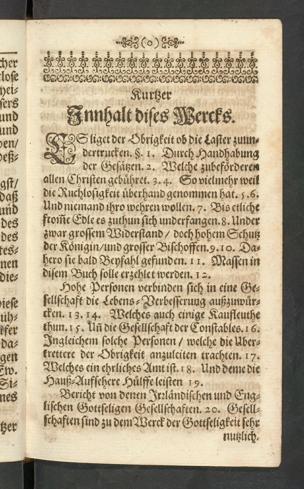 (o)
Kurtzer
Innhalt dises Wercks.
ES liget der Obrigkeit ob die Laster zu un-
dertrucken. §. 1. Durch Handhabung
der Gesätzen. 2. Welche zubefördern
allen Christen gebühret. 3. 4. So vielmehr weil
die Ruchlosigkeit überhand genommen hat. 5. 6.
Und niemand ihro wehren wollen. 7. Bis etliche
from̃e Edle es zuthun sich underfangen. 8. Under
zwar grossem Widerstand / doch hohem Schutz
der Königin / und grosser Bischoffen. 9. 10. Da-
hero sie bald Beyfahl gefunden. 11. Massen in
disem Buch solle erzehlet werden. 12.
Hohe Personen verbinden sich in eine Ge-
sellschaft die Lebens-Verbesserung auszuwür-
cken. 13. 14. Welches auch einige Kaufleuthe
thun. 15. Uñ die Gesellschaft der Constables. 16.
Ingleichem solche Personen / welche die Über-
trettere der Obrigkeit anzuleiten trachten. 17.
Welches ein ehrliches Amt ist. 18. Und denne die
Hauß-Aufsehere Hülffe leisten 19.
Bericht von denen Irrländischen und Eng-
lischen Gottseligen Gesellschaften. 20. Gesell-
schaften sind zu dem Werck der Gottseligkeit sehr
nutzlich.